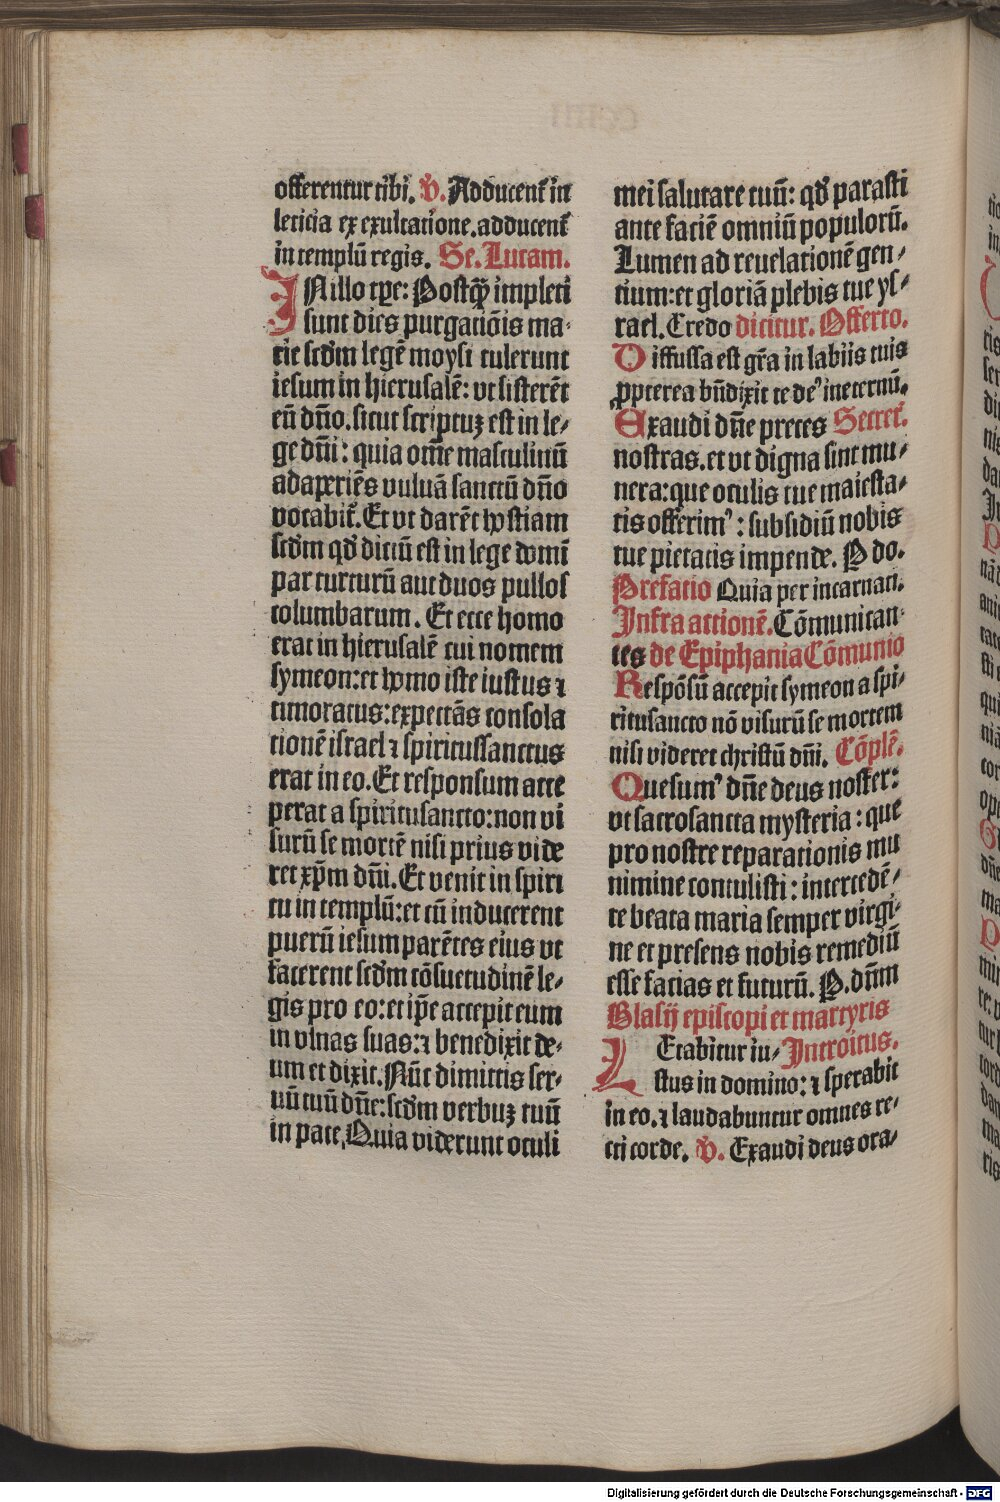 offerentur tibi. V̷. Adducent᷑ in
leticia ⁊ exultatione. adducent᷑
in templū regis. Se. Lucam.
IN illo tꝑe: Postq̄ꝫ impleti
sunt dies purgatiōis ma-
rie scd̄m legē moysi tulerunt
iesum in hierusalē: vt sisterēt
eū dn̄o. sicut scriptuꝫ est in le-
ge dn̄i: quia om̄e masculinū
adaperiēs vuluā sanctū dn̄o
vocabit᷑. Et vt darēt hostiam
scd̄m qd̄ dictū est in lege domī
par turturū aut duos pullos
columbarum. Et ecce homo
erat in hierusalē cui nomen
symeon: et homo iste iustus ⁊
timoratus: expectās consola
tionē israel ⁊ spiritussanctus
erat in eo. Et responsum acce
perat a spiritusancto: non vi
surū se mortē nisi prius vide
ret xp̄m dn̄i. Et venit in spiri
tu in templū: et cū inducerent
puerū iesum parētes eius vt
facerent scd̄m cōsuetudinē le-
gis pro eo: et ip̄e accepit eum
in vlnas suas: ⁊ benedixit de-
um et dixit. Nūc dimittis ser-
uū tuū dn̄e: scd̄m verbuꝫ tuū
in pace. Quia viderunt oculi
mei salutare tuū: qd̄ parasti
ante faciē omniū populorū.
Lumen ad reuelationē gen-
tium: et gloriā plebis tue ys-
rael. Credo dicitur. Offerto.
Diffusa est gr̄a in labiis tuis
ꝓpterea bn̄dixit te deꝰ ineternū.
Exaudi dn̄e preces Secret᷑.
nostras. et vt digna sint mu-
nera: que oculis tue maiesta-
tis offerimꝰ: subsidiū nobis
tue pietatis impende. P do.
Prefatio Quia per incarnati.
Infra actionē. Cōmunican-
tes de Epiphania Cōmunio
Respōsū accepit symeon a spi-
ritusancto nō visurū se mortem
nisi videret christū dn̄i. Cōplē.
Quesumꝰ dn̄e deus noster:
vt sacrosancta mysteria: que
pro nostre reparationis mu
nimine contulisti: intercedē-
te beata maria semper virgi-
ne et presens nobis remediū
esse facias et futurū. P. dn̄m
Blasij episcopi et martyris
LEtabitur iu- Introitus.
stus in domino: ⁊ sperabit
in eo. ⁊ laudabuntur omnes re-
cti corde. V̷. Exaudi deus ora-
Digitalisierung gefördert durch die Deutsche Forschungsgemeinschaft - DFG